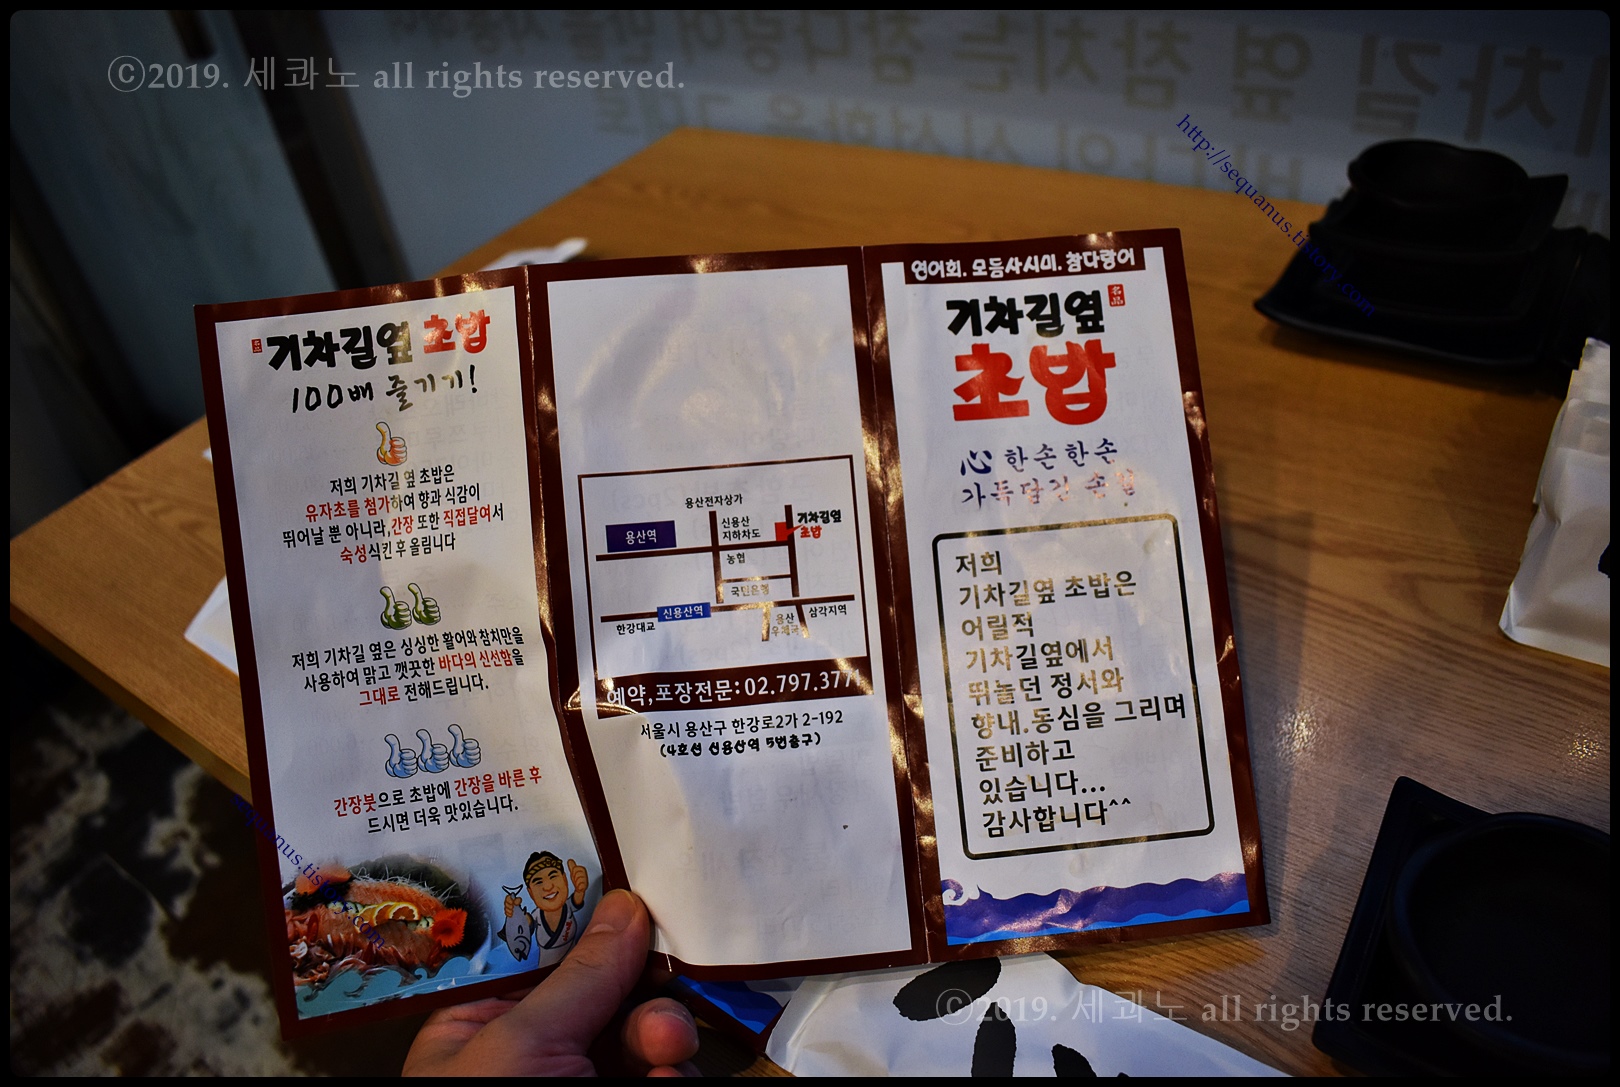 ⓒ2019. 세콰노 all rights reserved.
http://sequanus.tistory.com
기차길옆 초밥
100배 즐기기!
저희 기차길 옆 초밥은
유자초를 첨가하여 향과 식감이
뛰어날 뿐 아니라,간장 또한 직접달여서
숙성식킨 후 올림니다
저희 기차길 옆은 싱싱한 활어와 참치만을
사용하여 맑고 깻끗한 바다의 신선함을
그대로 전해드립니다.
간장붓으로 초밥에 간장을 바른 후
드시면 더욱 맛있습니다.
sequanus.tistory.com
용산전자상가
용산역
신용산
지하차도
기차길옆
초밥
농협
국민은행
신용산역
한강대교
용산
우체국
삼각지역
예약,포장전문:02.797.3771
서울시 용산구 한강로2가 2-192
(4호선 신용산역 5번출구)
연어회. 모듬사시미. 참다랑어
기차길옆
名品
초밥
心 한손한손
가득담긴 손
저희
기차길옆 초밥은
어릴적
기차길옆에서
뛰놀던 정서와
향내.동심을 그리며
준비하고
있습니다...
감사합니다^^
ⓒ2019. 세콰노 all rights reserved.